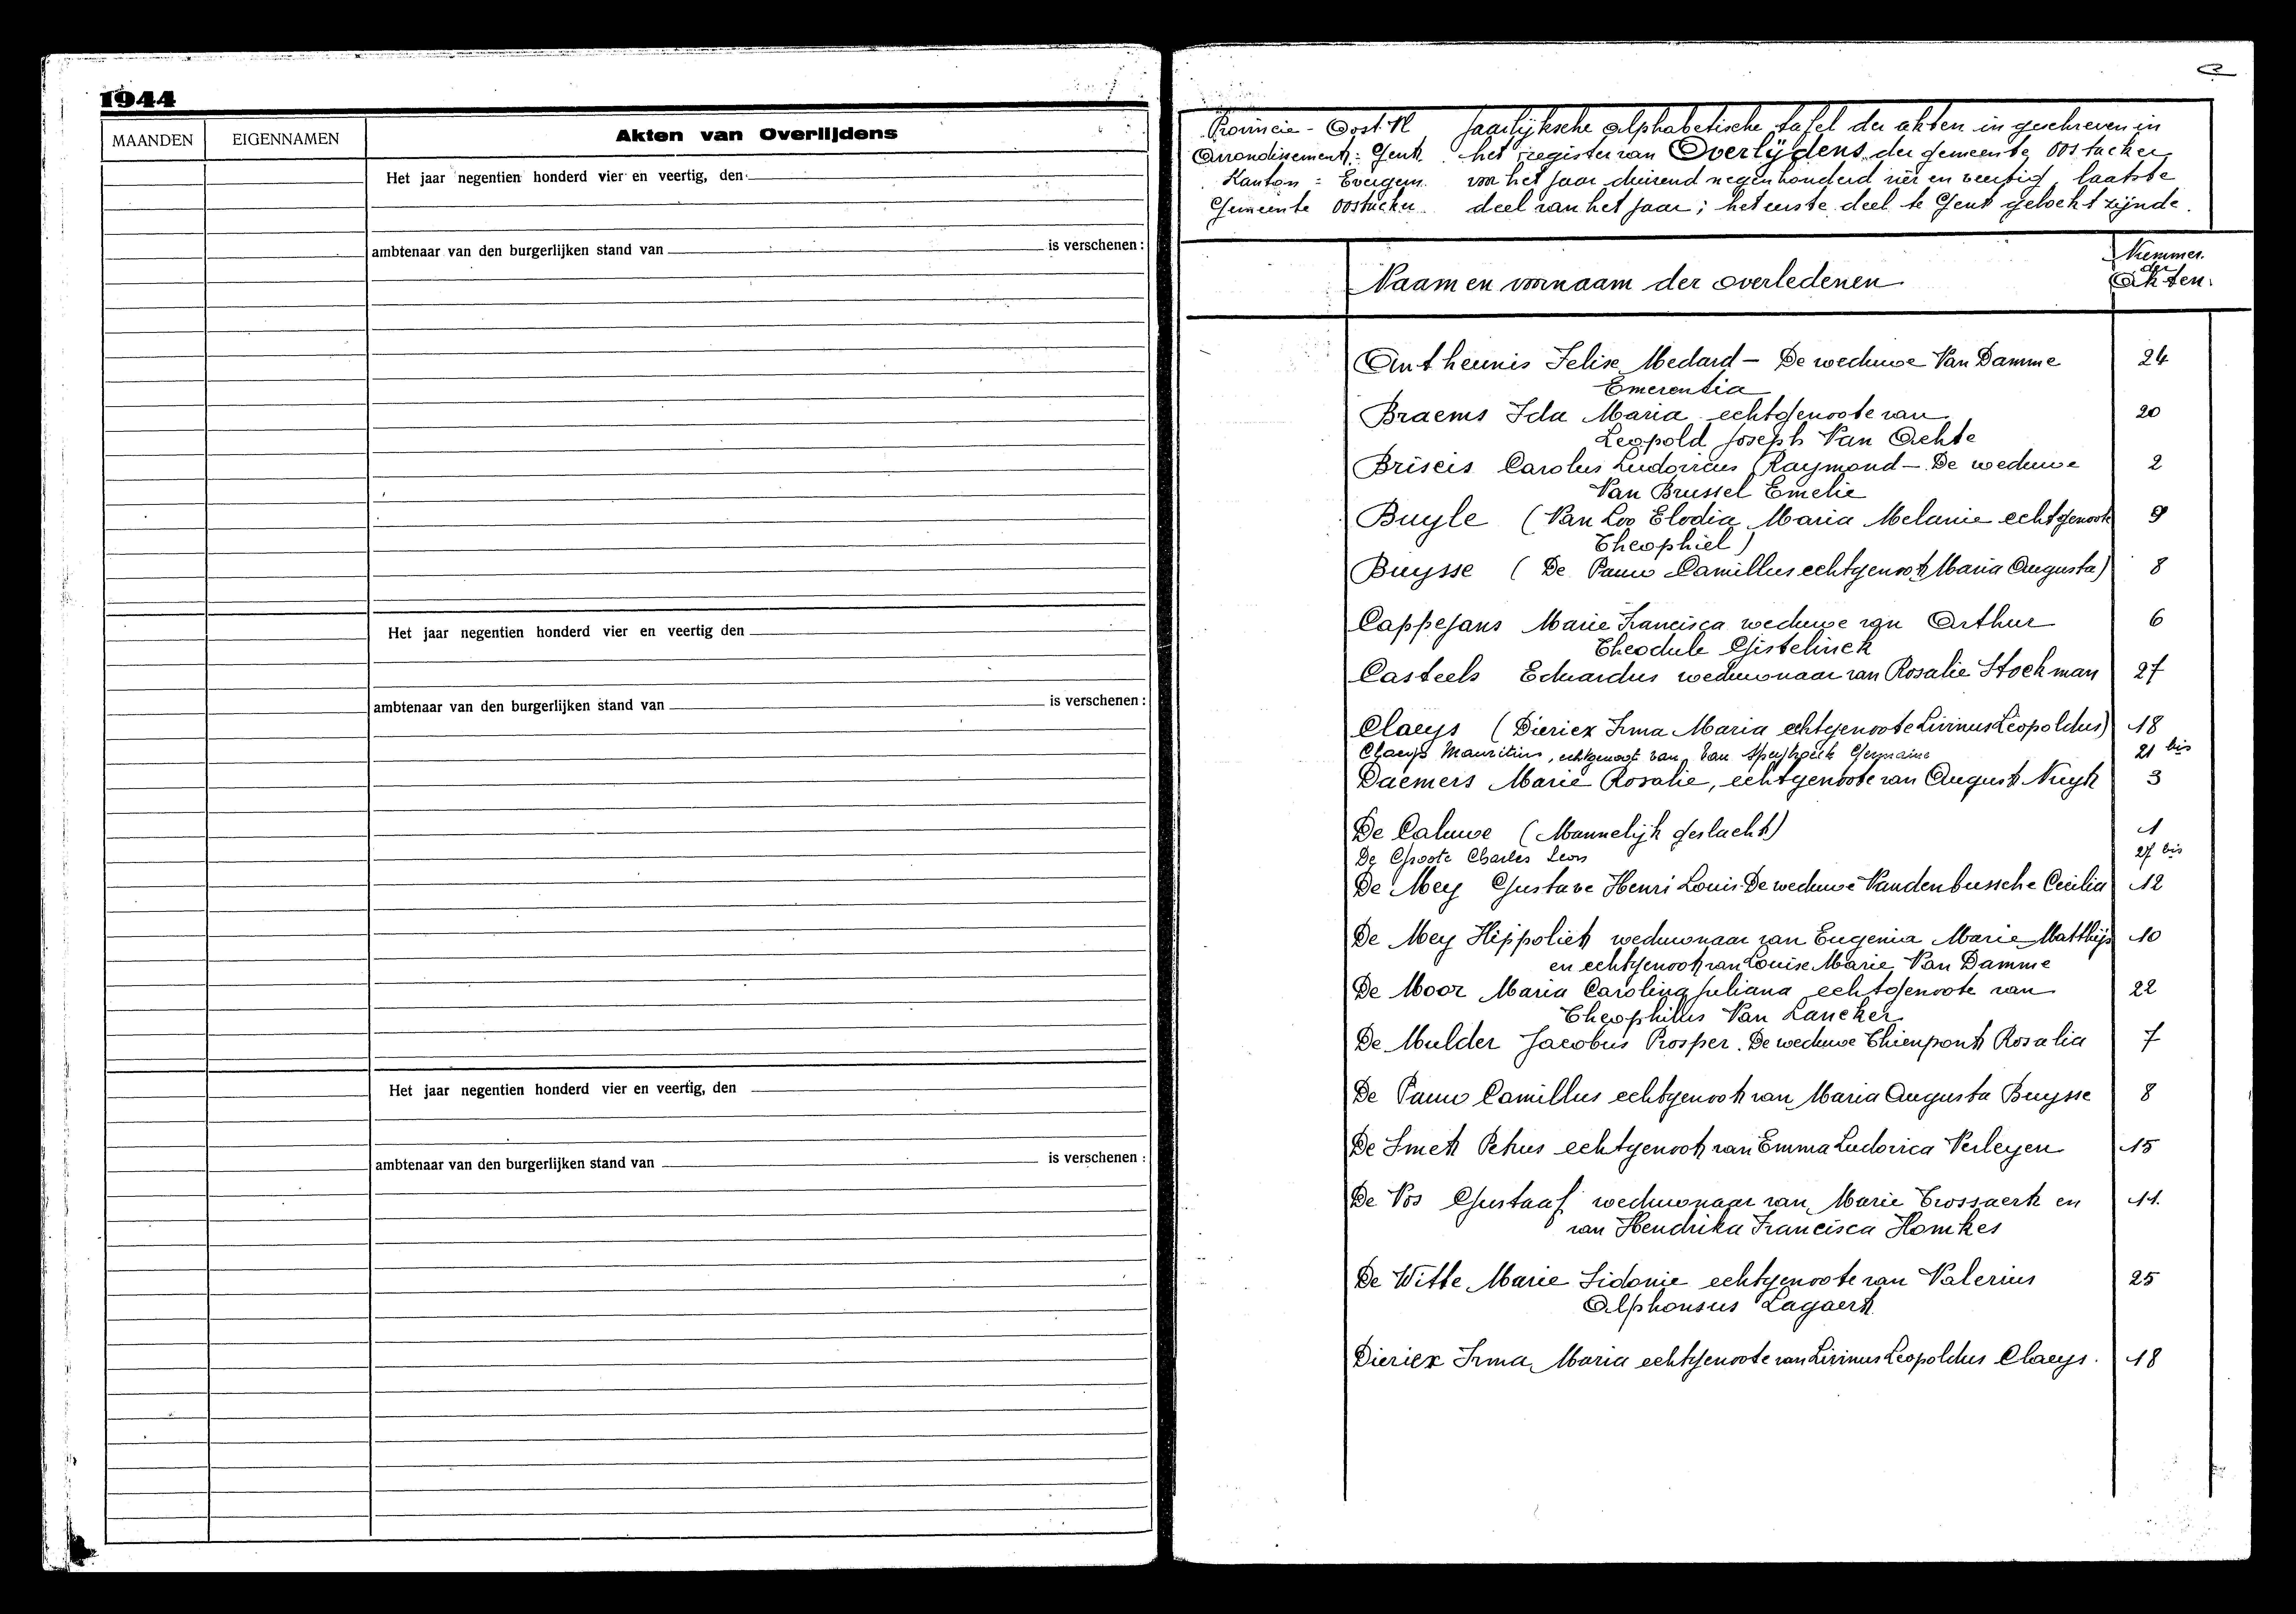 1944
MAANDEN
EIGENNAMEN
Akten van Overlijdens
Het jaar negentien honderd vier en veertig, den
ambtenaar van den burgerlijken stand van
is verschenen :
Het jaar negentien honderd vier en veertig den
ambtenaar van den burgerlijken stand van
is verschenen :
Het jaar negentien honderd vier en veertig, den
ambtenaar van den burgerlijken stand van
is verschenen :
Provincie - Oost Vl Jaarlijksche alphabetische tafel der akten ingeschreven in
Arrondissement : Gent. het register van Overlijdens der gemeente Oostacker
Kanton = Evergem. voor het jaar duizend negenhonderd vier en veertig laatste
Gemeente Oostacker deel van het jaar ; het eerste deel te Gent gelocht zijnde.
Naam en voornaam der overledenen
Nummer
der
Akten.
Antheunis Felise Medard - De weduwe Van Damme 24
Emerentia
Braems Ida Maria echtgenoote van 20
Leopold Joseph Van Achte
Briseis Carolus Ludovicus Raymond - De weduwe 2
Van Brussel Emelie
Buyle (Van Loo Elodia Maria Melanie echtgenoote 9
Theophiel)
Buysse ( De Pauw Camillus echtgenoot Maria Augusta) 8
Cappejans Marie Francisca weduwe van Arthur 6
Theodule Gistelinck
Casteels Eduardus weduwnaar van Rosalie Stockman 27
Claeys (Dierickx Irma Maria echtgenoote Livinus Leopoldus) 18
Claeys Mauritius, echtgenoot van Van Speybroeck Germaine 21 bis
Daemers Marie Rosalie, echtgenoote van August Nuyt 3
De Caluwe (Mannelijk geslacht) 1
De Groote Charles Leon 27 bis
De Mey Gustave Henri Louis De weduwe Vandenbussche Cecilia 12
De Mey Hippoliet weduwnaar van Eugenia Marie Matthijs 10
en echtgenoot van Louise Marie Van Damme
De Moor Maria Carolina Juliana echtgenoote van 22
Theophilus Van Lancker
De Mulder Jacobus Prosper. De weduwe Thienpont Rosalia 7
De Pauw Camillus echtgenoot van Maria Augusta Buysse 8
De Smet Petrus echtgenoot van Emma Ludovica Verleyen 15
De Vos Gustaaf weduwnaar van Marie Trossaert en 11.
van Hendrika Francisca Homkes
De Witte Marie Sidonie echtgenoote van Valerius 25
Alphonsus Lagaert
Dierickx Irma Maria echtgenoote van Livinus Leopoldus Claeys. 18